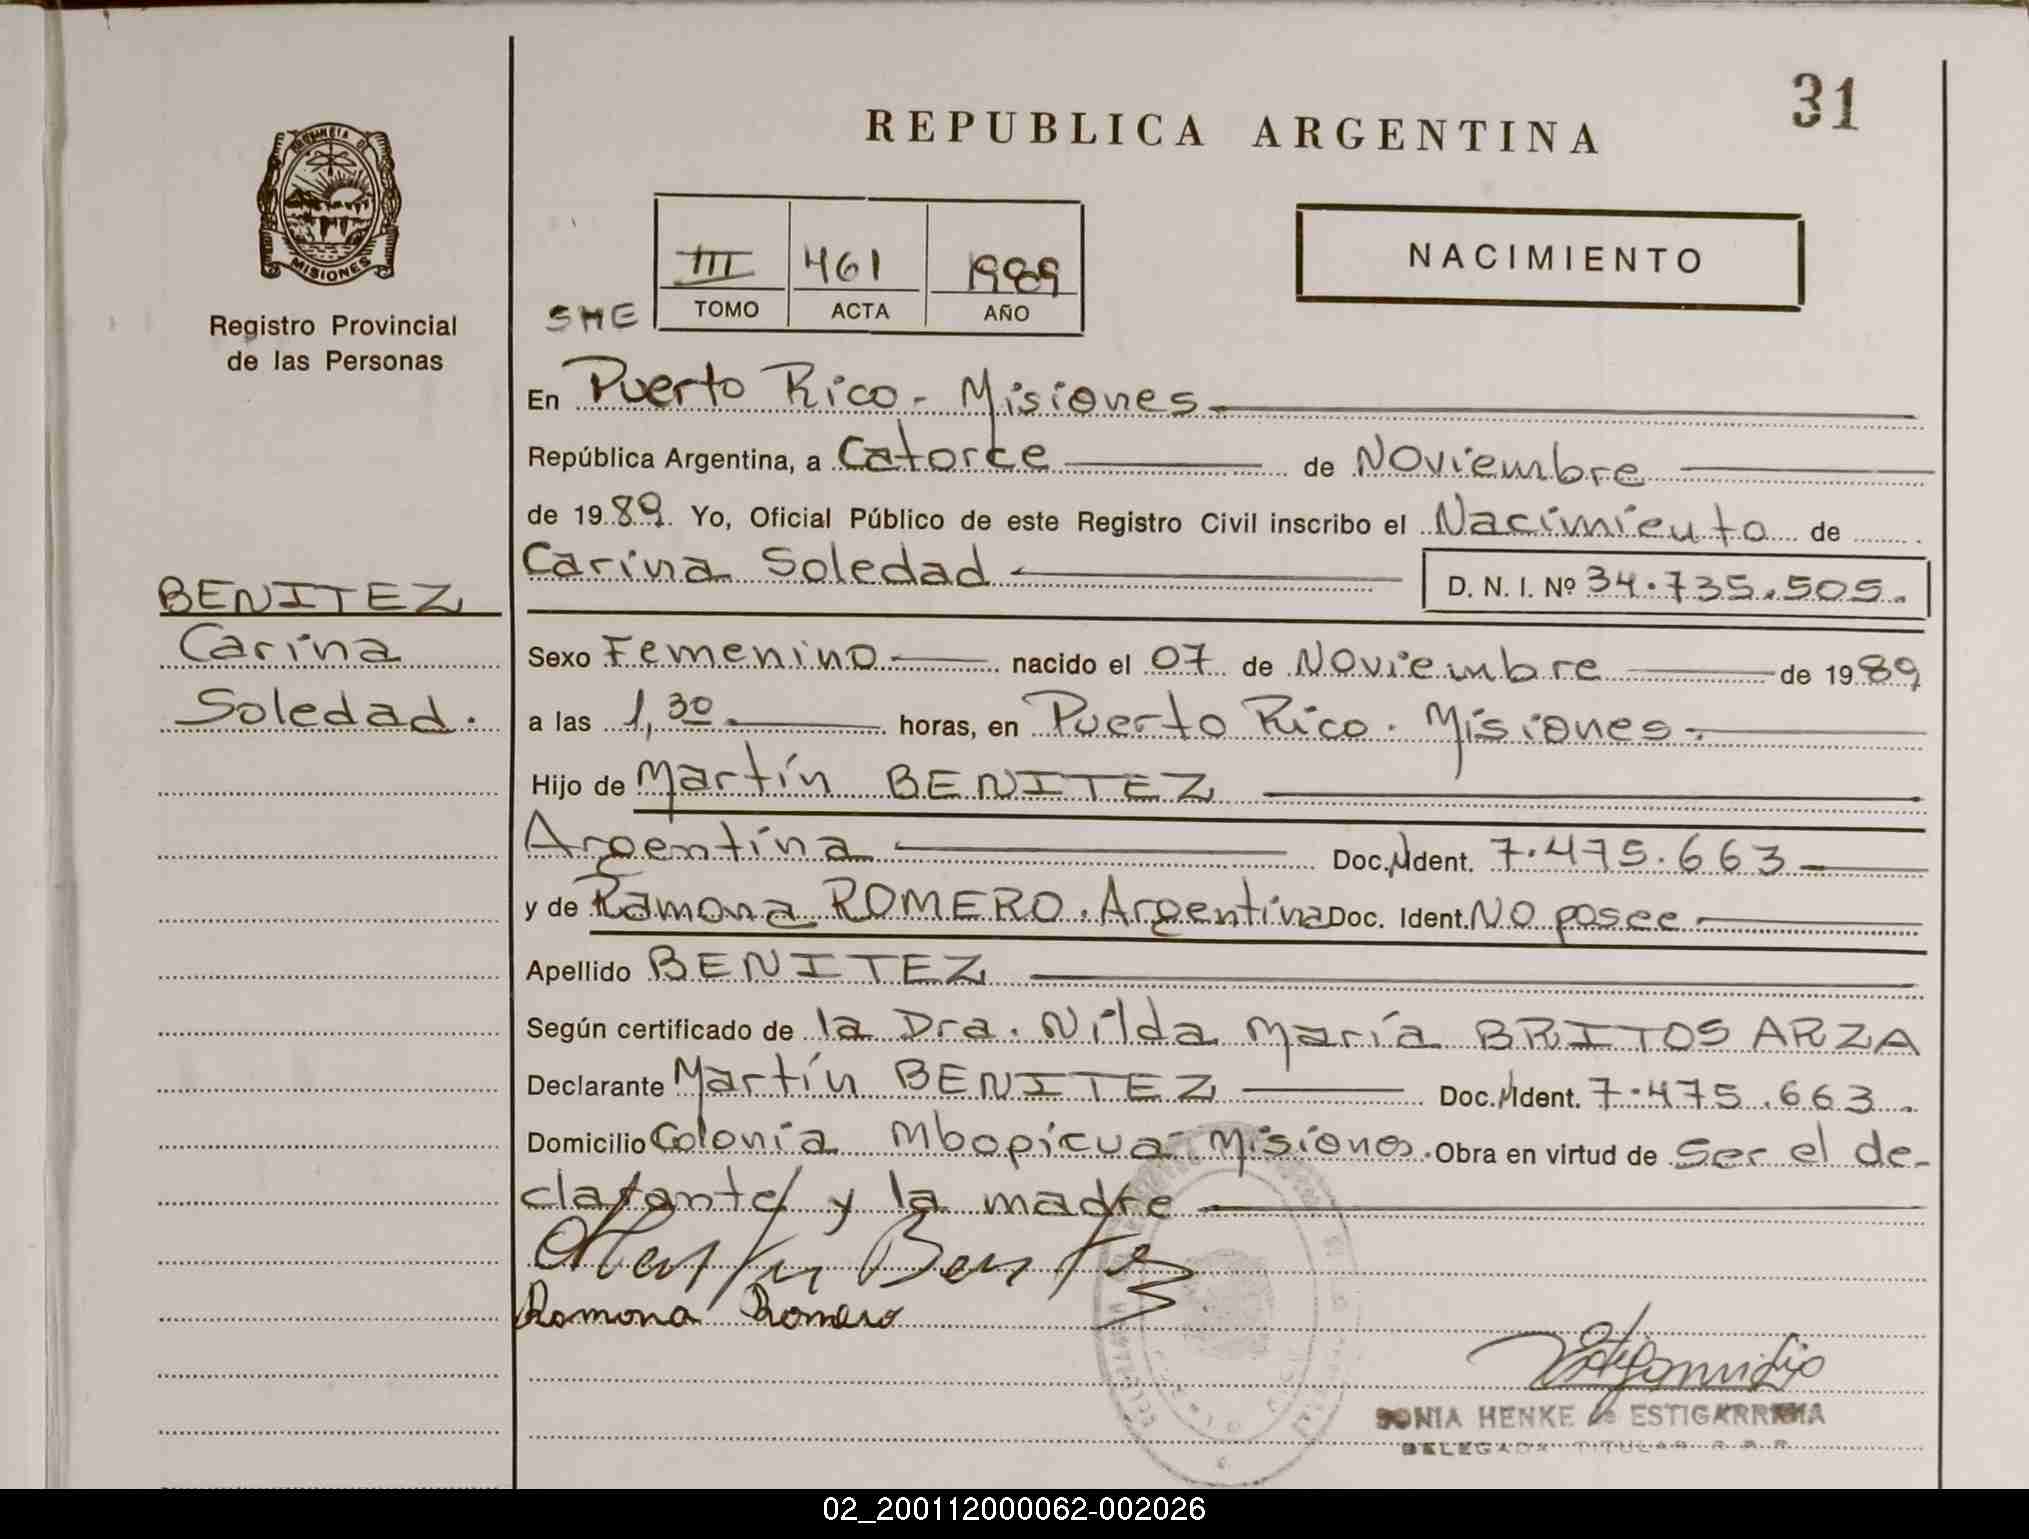 31
REPUBLICA ARGENTINA
PROVINCIA DE
MISIONES
Registro Provincial
de las Personas
III 461 1989
TOMO ACTA AÑO
SHE
NACIMIENTO
BENITEZ
Carina
Soledad.
En Puerto Rico - Misiones
República Argentina, a Catorce de Noviembre
de 1989. Yo, Oficial Público de este Registro Civil inscribo el Nacimiento de
Carina Soledad D. N. I. Nº 34.735.505.
Sexo Femenino nacido el 07 de Noviembre de 1989
a las 1,30 horas, en Puerto Rico. Misiones
Hijo de Martín BENITEZ
Argentina Doc. N Ident. 7.475.663
y de Ramona ROMERO. Argentina Doc. Ident. No posee
Apellido BENITEZ
Según certificado de la Dra. Nilda María BRITOS ARZA
Declarante Martín BENITEZ Doc. N Ident. 7.475.663.
Domicilio Colonia Mbopicua - Misiones. Obra en virtud de Ser el de-
clarante y la madre
Martin Benitez
Ramona Romero
SONIA HENKE de ESTIGARRIBIA
DELEGADA TITULAR R.P.P.
02_200112000062-002026